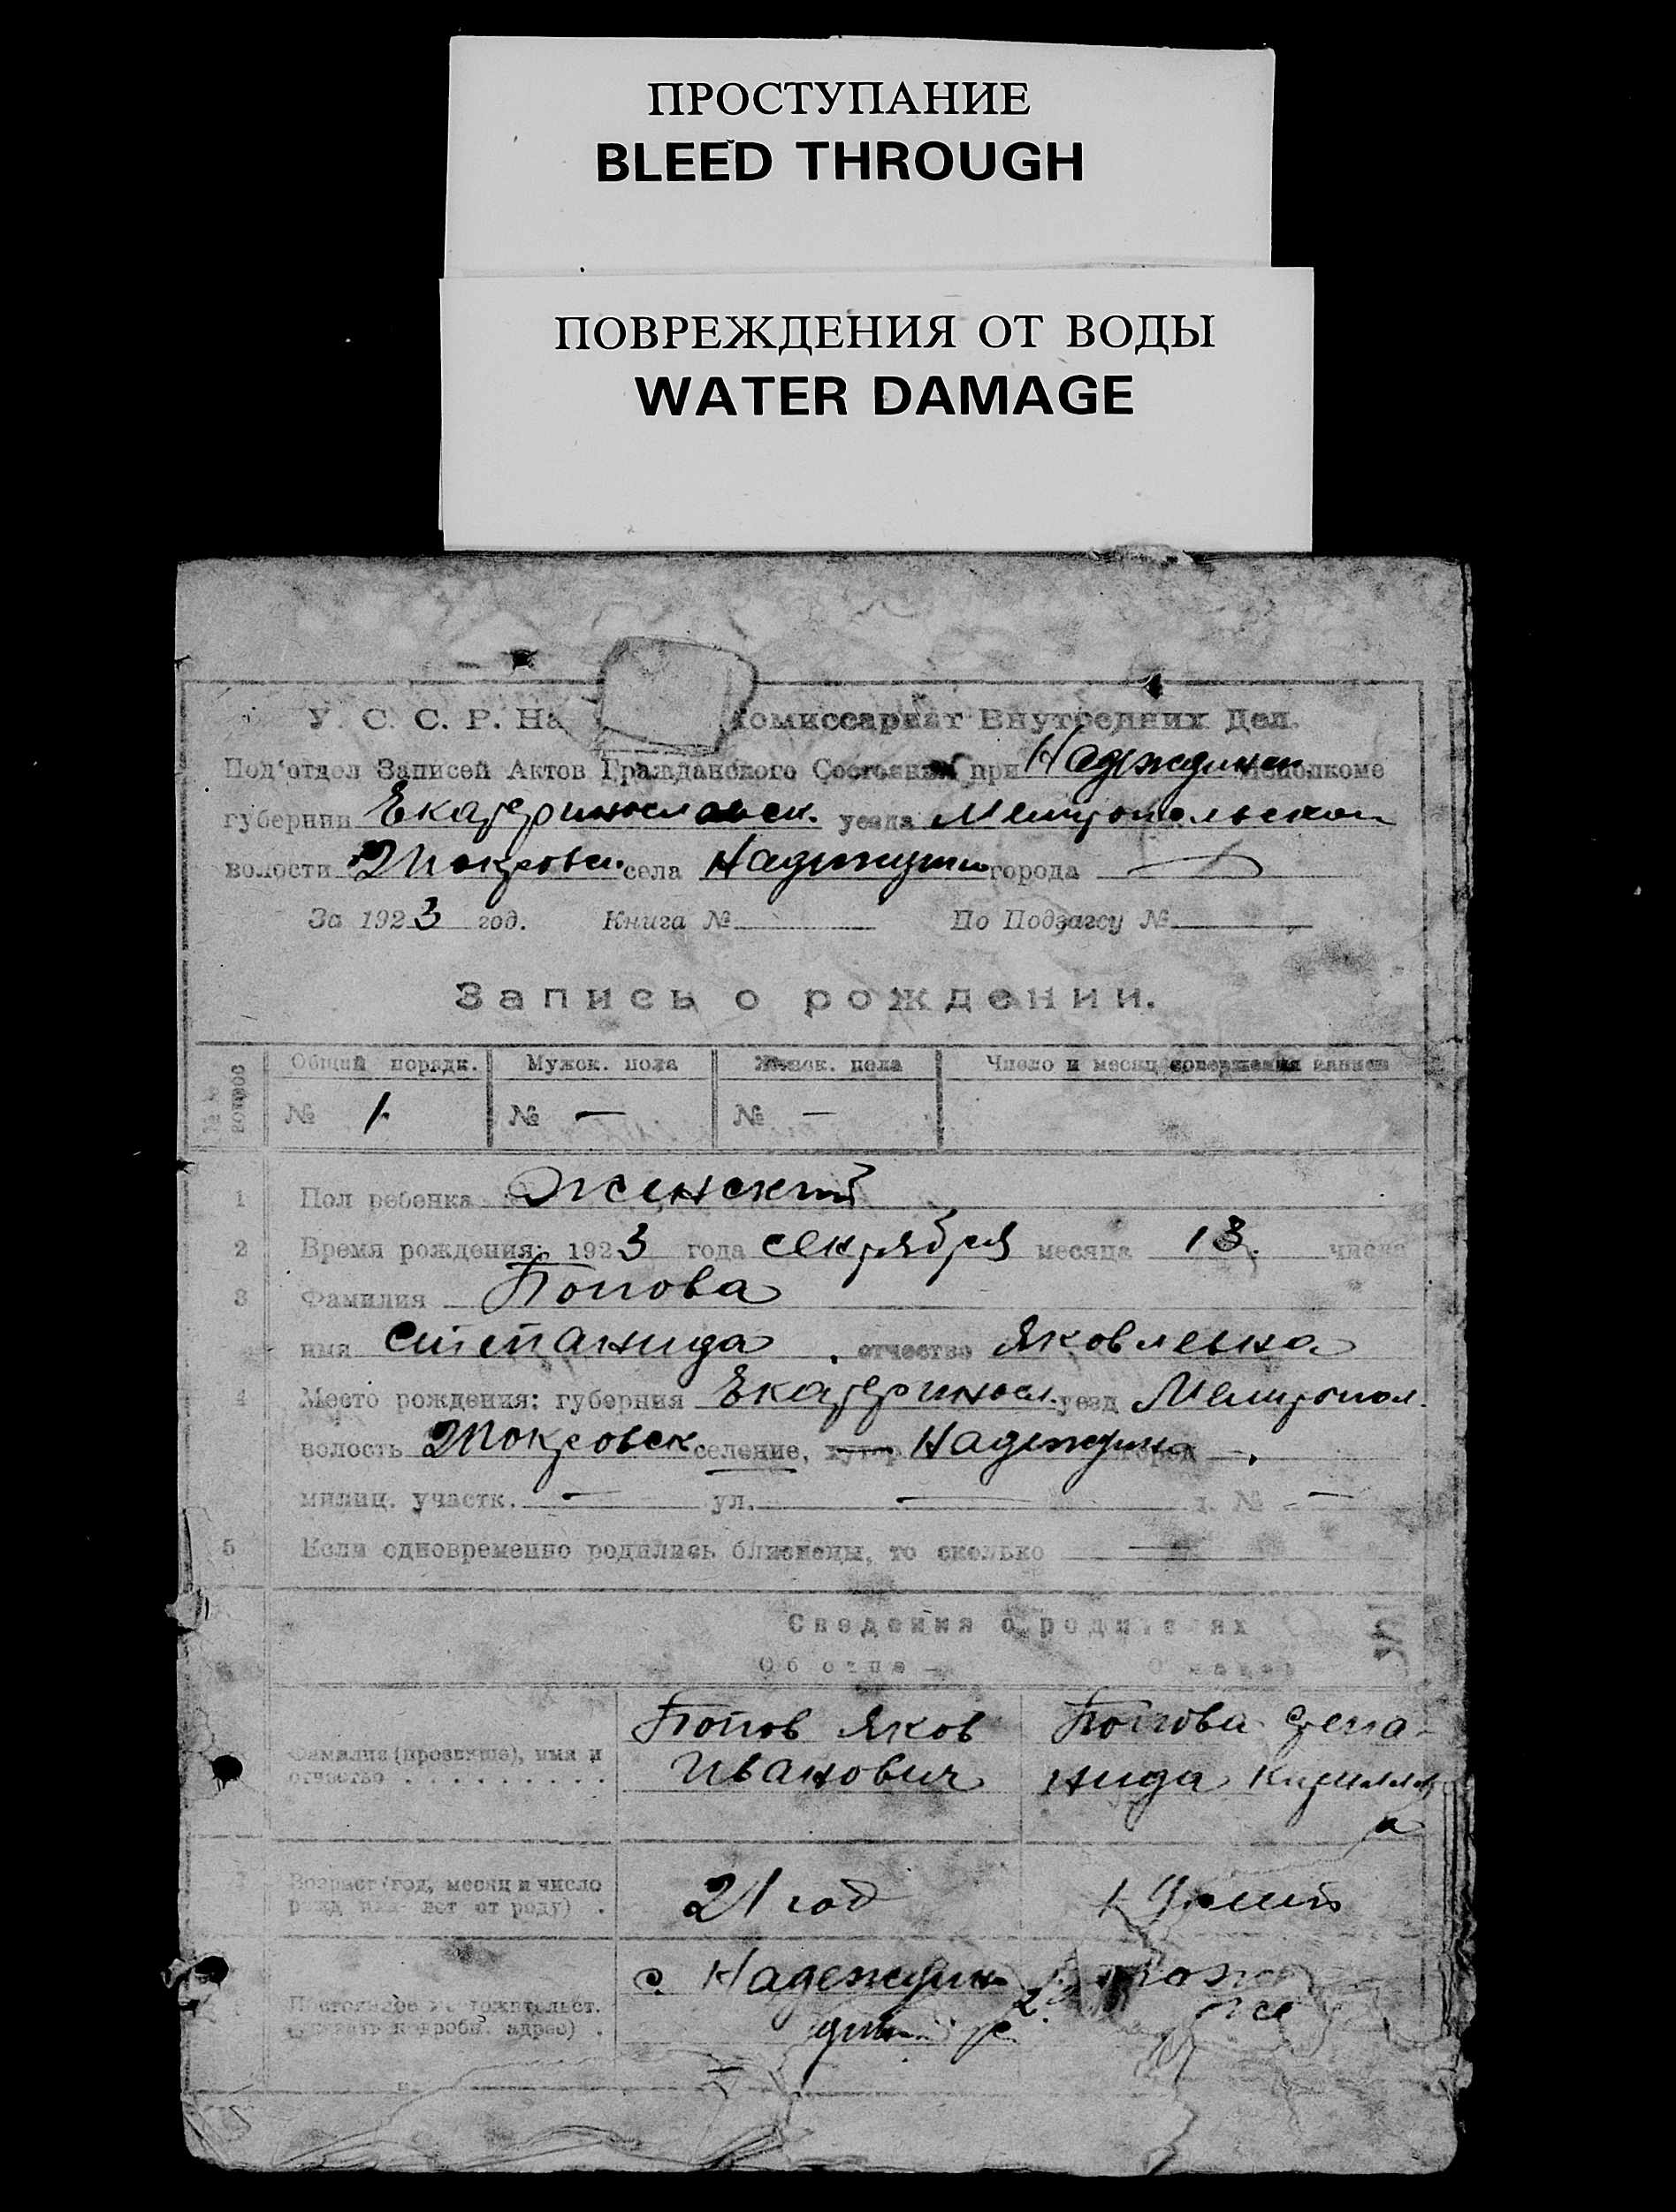 ПРОСТУПАНИЕ
BLEED THROUGH
ПОВРЕЖДЕНИЯ ОТ ВОДЫ
WATER DAMAGE
У. С. С. Р. На омиссариат Внутренних Дел.
Под'отдел Записей Актов Гражданского Состояния при Надеждинск Исполкоме
губернии Екатеринославск. уезда Мелитопольском
волости Покровск. села Надеждино города —
За 1923 год. Книга № По Подзагсу №
Запись о рождении.
№№ вопрос
Общий порядк. Мужск. пола Женск. пола Число и месяц совершения записи
№ 1. № — № —
1 Пол ребенка Женский
2 Время рождения: 1923 года сентября месяца 13. числа
3 Фамилия Попова
имя Степанида, отчество Яковлевна
4 Место рождения: губерния Екатериносл. уезд Мелитопол.
волость Покровск селение, хутор Надеждина город —.
милиц. участк. — ул. — д. № —
5 Если одновременно родились близнецы, то сколько —
Сведения о родителях
Об отце О матери
Попов Яков Попова Степа-
Фамилия (прозвище), имя и
отчество . . . . . . . . . Иванович нида Кирилловн
а
Возраст (год, месяц и число
рожд. или лет от роду) . 21 год 19 лет
с. Надеждин тож
Постоянное местожительст.
(указать подробн. адрес) . же